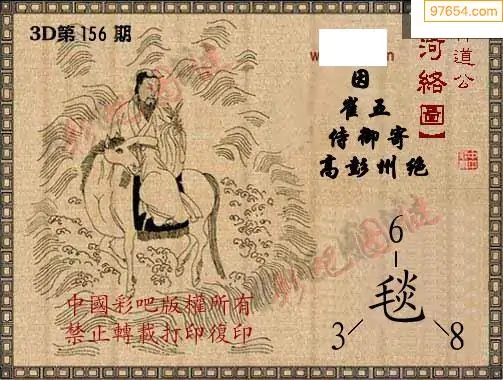 97654.com
3D第156期
道公
河絡圖】
因
崔五
侍御寄
高彭州绝
6
毯
3 8
中國彩吧版權所有
禁止轉載打印復印